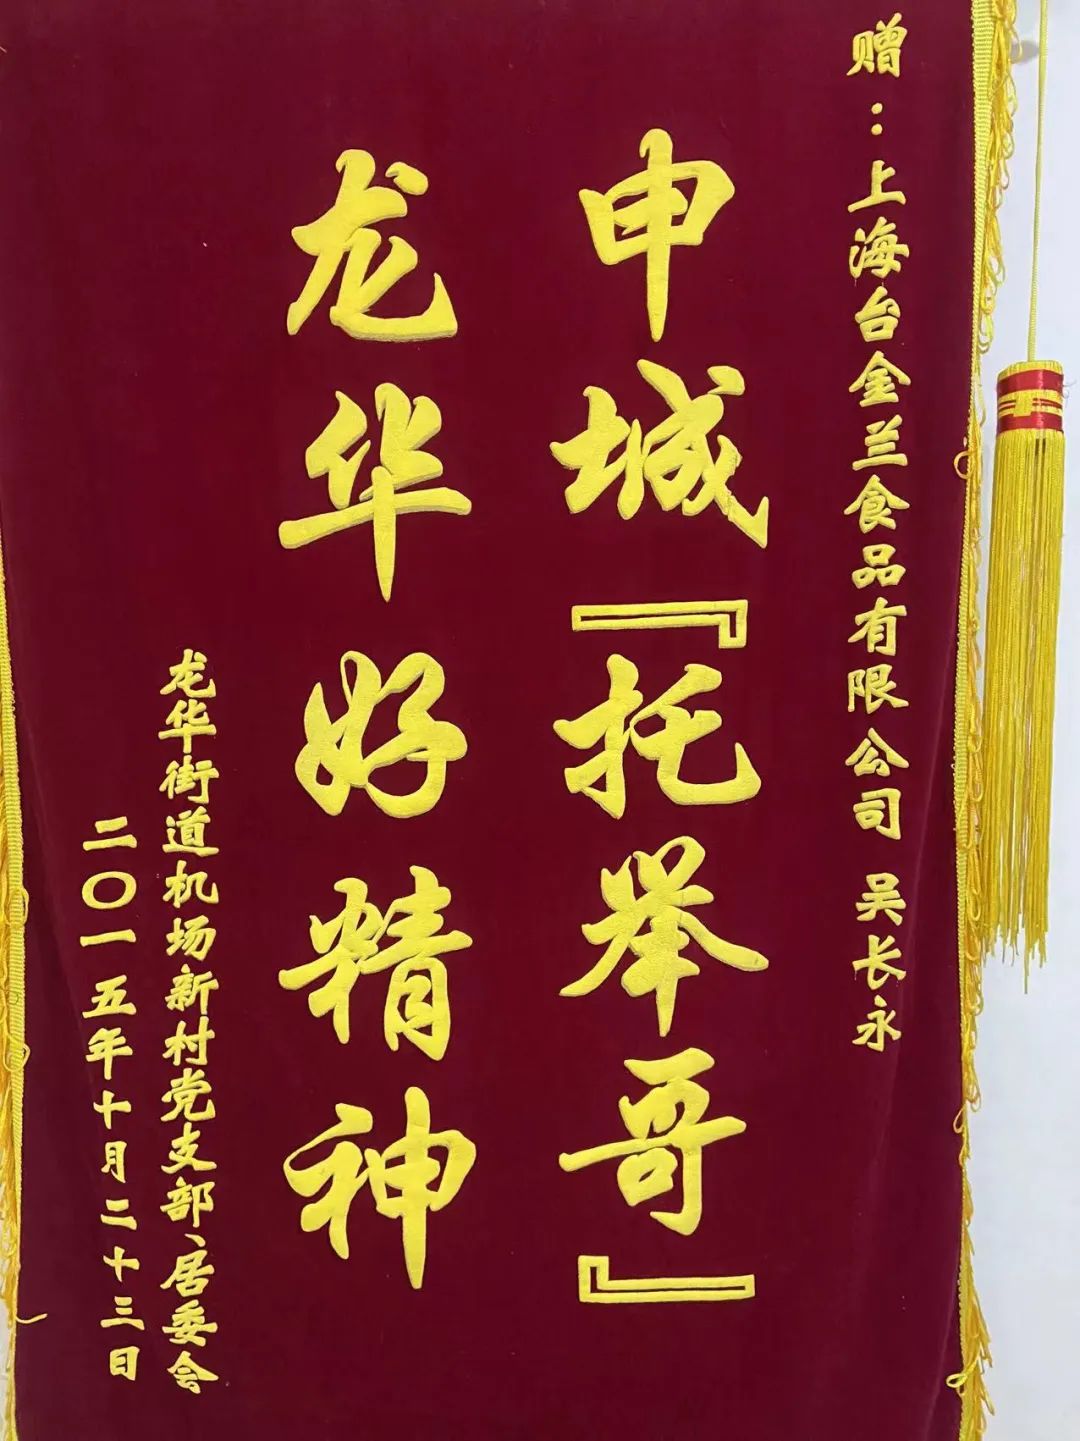 赠：上海台金兰食品有限公司 吴长永
申城『托举哥』
龙华好精神
龙华街道机场新村党支部、居委会
二〇一五年十月二十三日